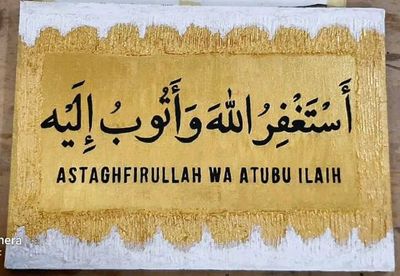 أَسْتَغْفِرُ اللهَ وَأَتُوبُ إِلَيْهِ
ASTAGHFIRULLAH WA ATUBU ILAIH